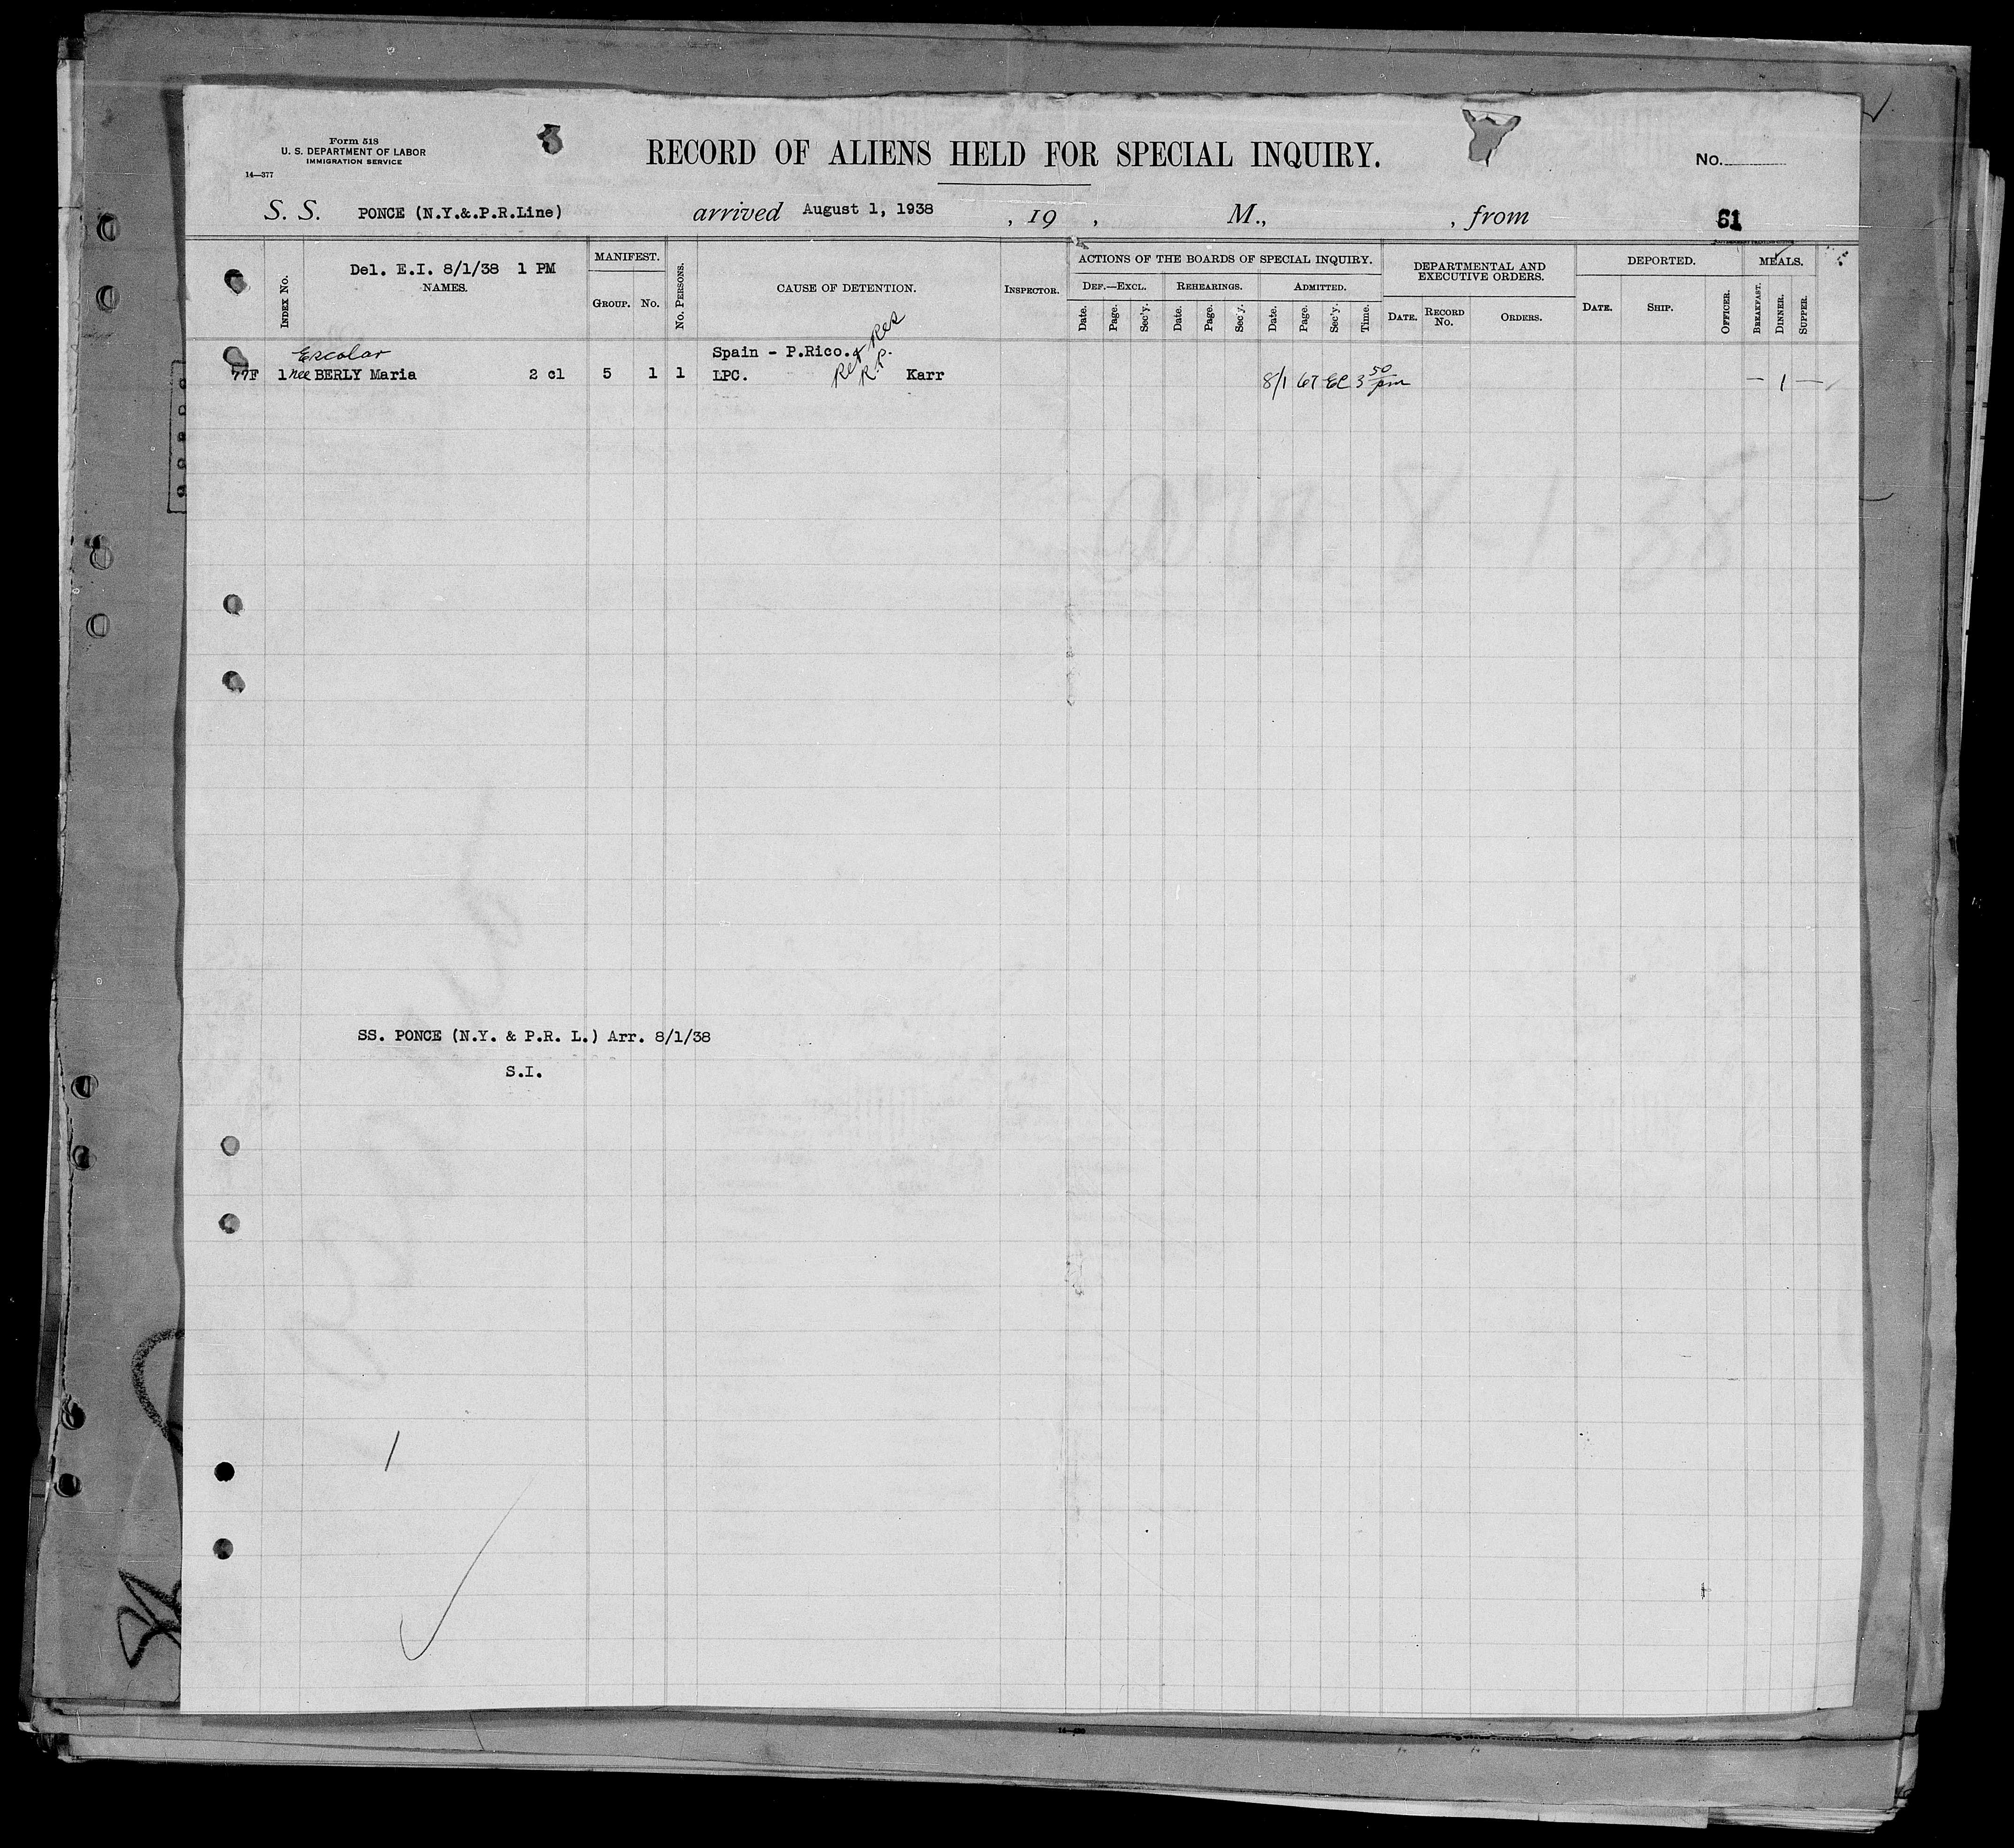 Form 518
U. S. DEPARTMENT OF LABOR
IMMIGRATION SERVICE
14—377
RECORD OF ALIENS HELD FOR SPECIAL INQUIRY.
No.
S. S. PONCE (N.Y.&.P.R.Line) arrived August 1, 1938 , 19 , M., , from
61
INDEX NO.
Del. E.I. 8/1/38 1 PM
NAMES.
MANIFEST.
GROUP. NO.
NO. PERSONS.
CAUSE OF DETENTION.
INSPECTOR.
ACTIONS OF THE BOARDS OF SPECIAL INQUIRY.
DEF.—EXCL. REHEARINGS. ADMITTED.
Date. Page. Sec'y. Date. Page. Sec'y. Date. Page. Sec'y. Time.
DEPARTMENTAL AND
EXECUTIVE ORDERS.
DATE. RECORD NO. ORDERS.
DEPORTED.
DATE. SHIP. OFFICER.
MEALS.
BREAKFAST. DINNER. SUPPER.
Escolar Spain - P.Rico.
77F 1 nee BERLY Maria 2 cl 5 1 1 LPC. R.P. Karr 8/1 67 EC 3 50 pm — 1 —
SS. PONCE (N.Y. & P.R. L.) Arr. 8/1/38
S.I.
1